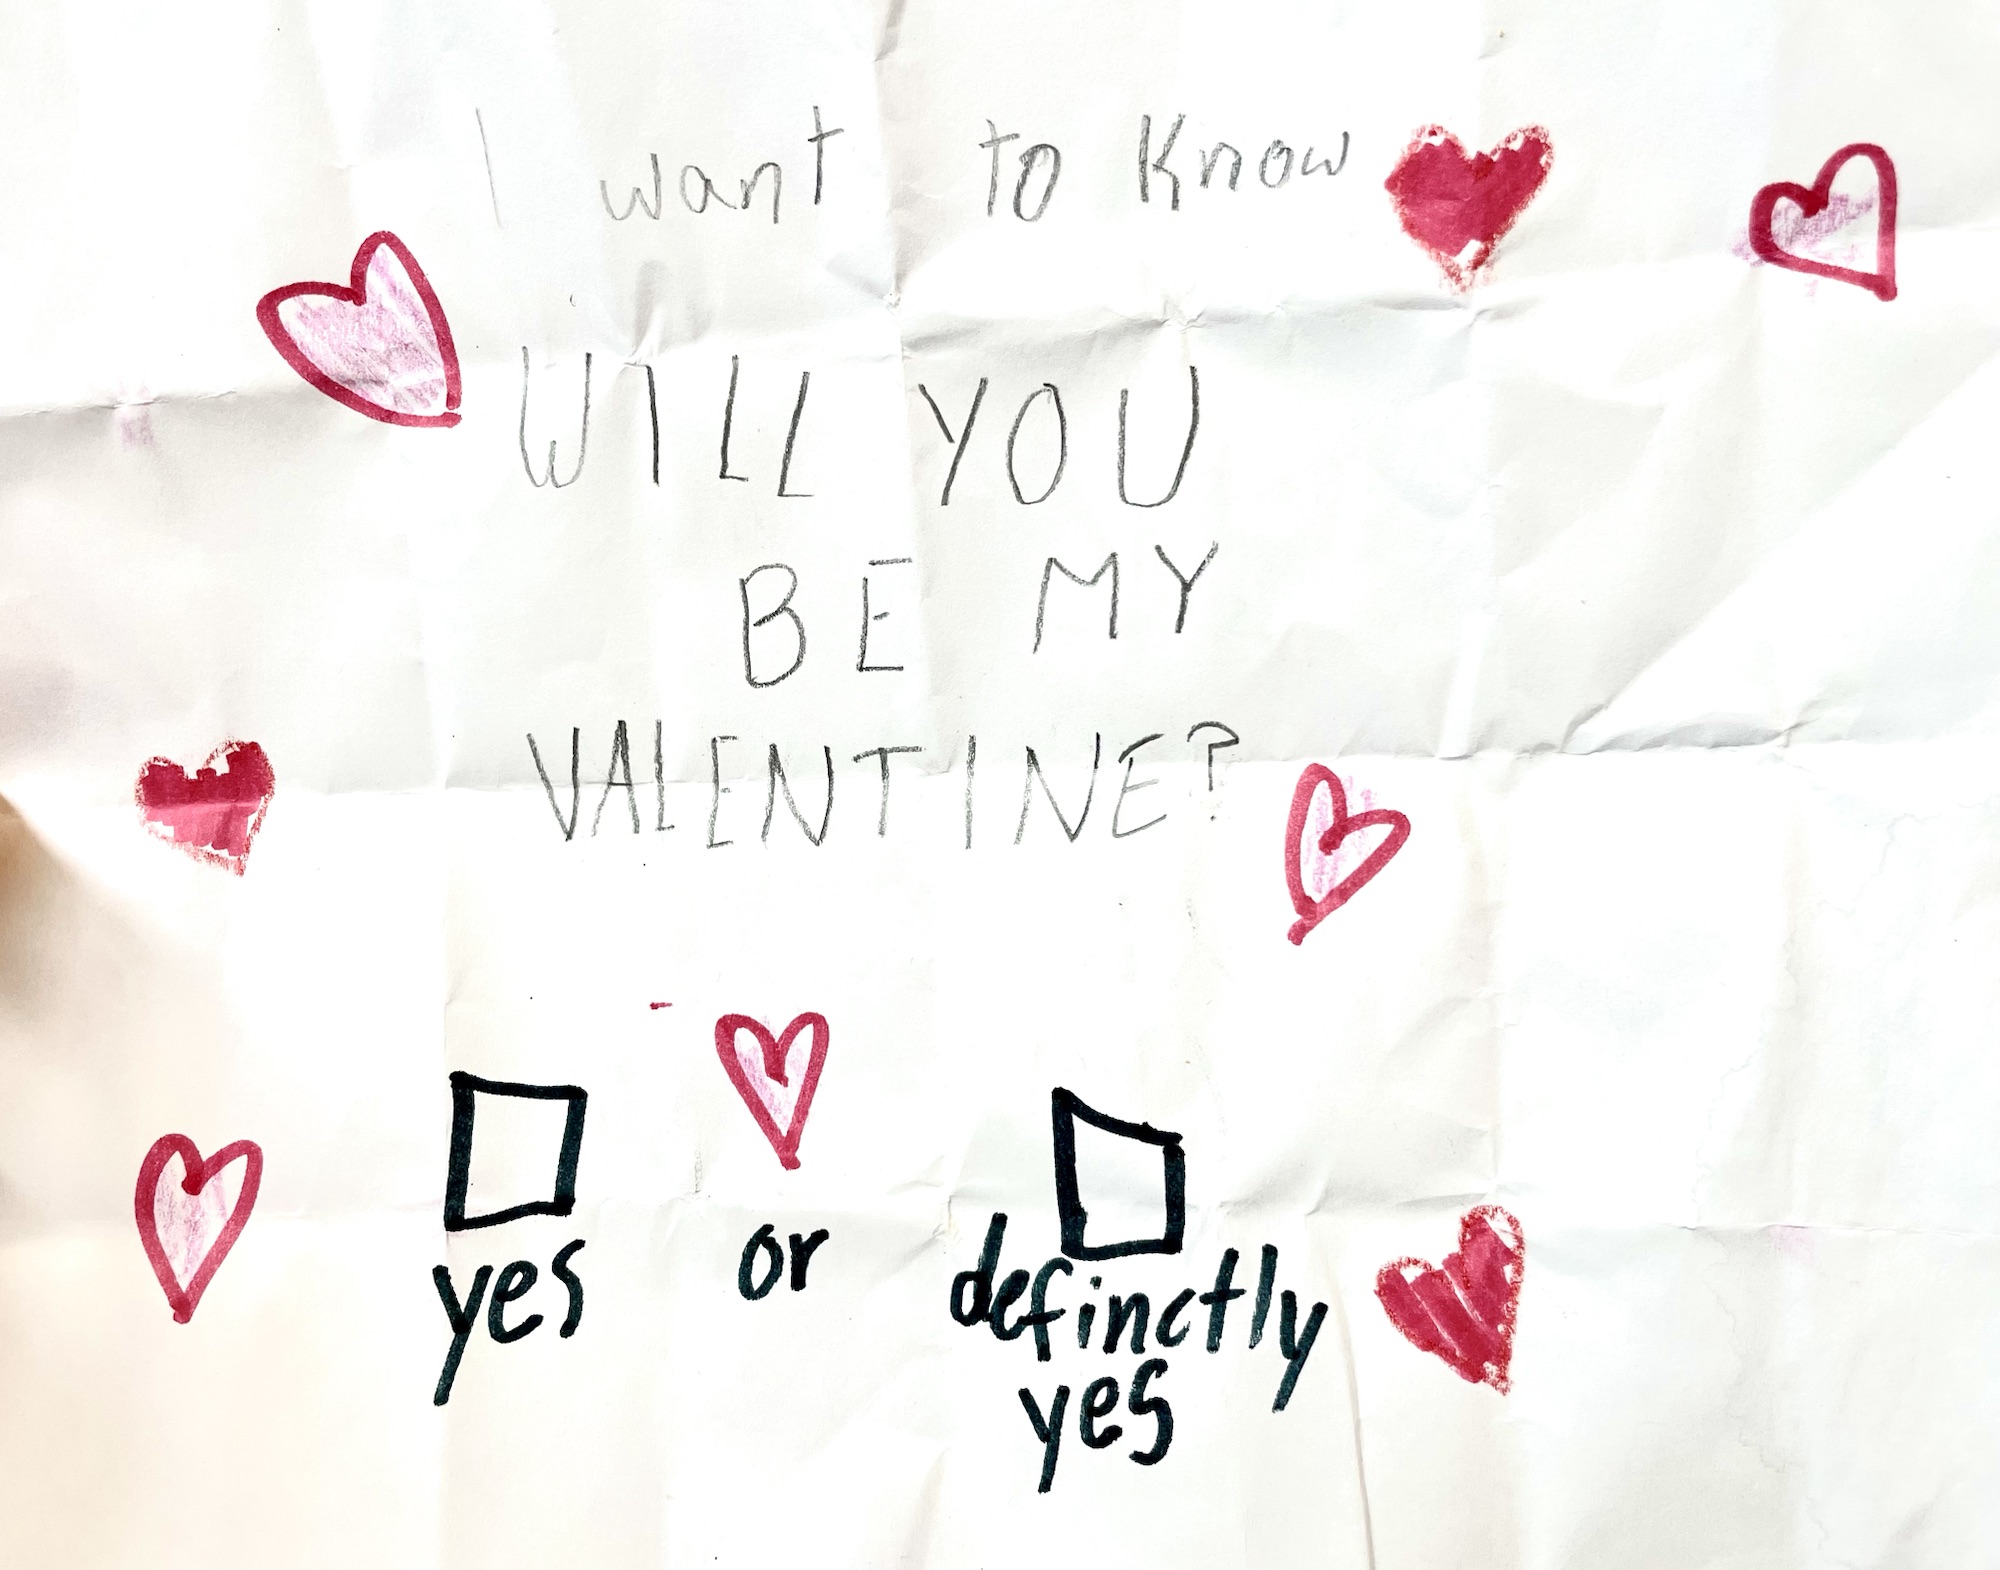 I want to Know
WILL YOU
BE MY
VALENTINE?
yes or definctly
yes